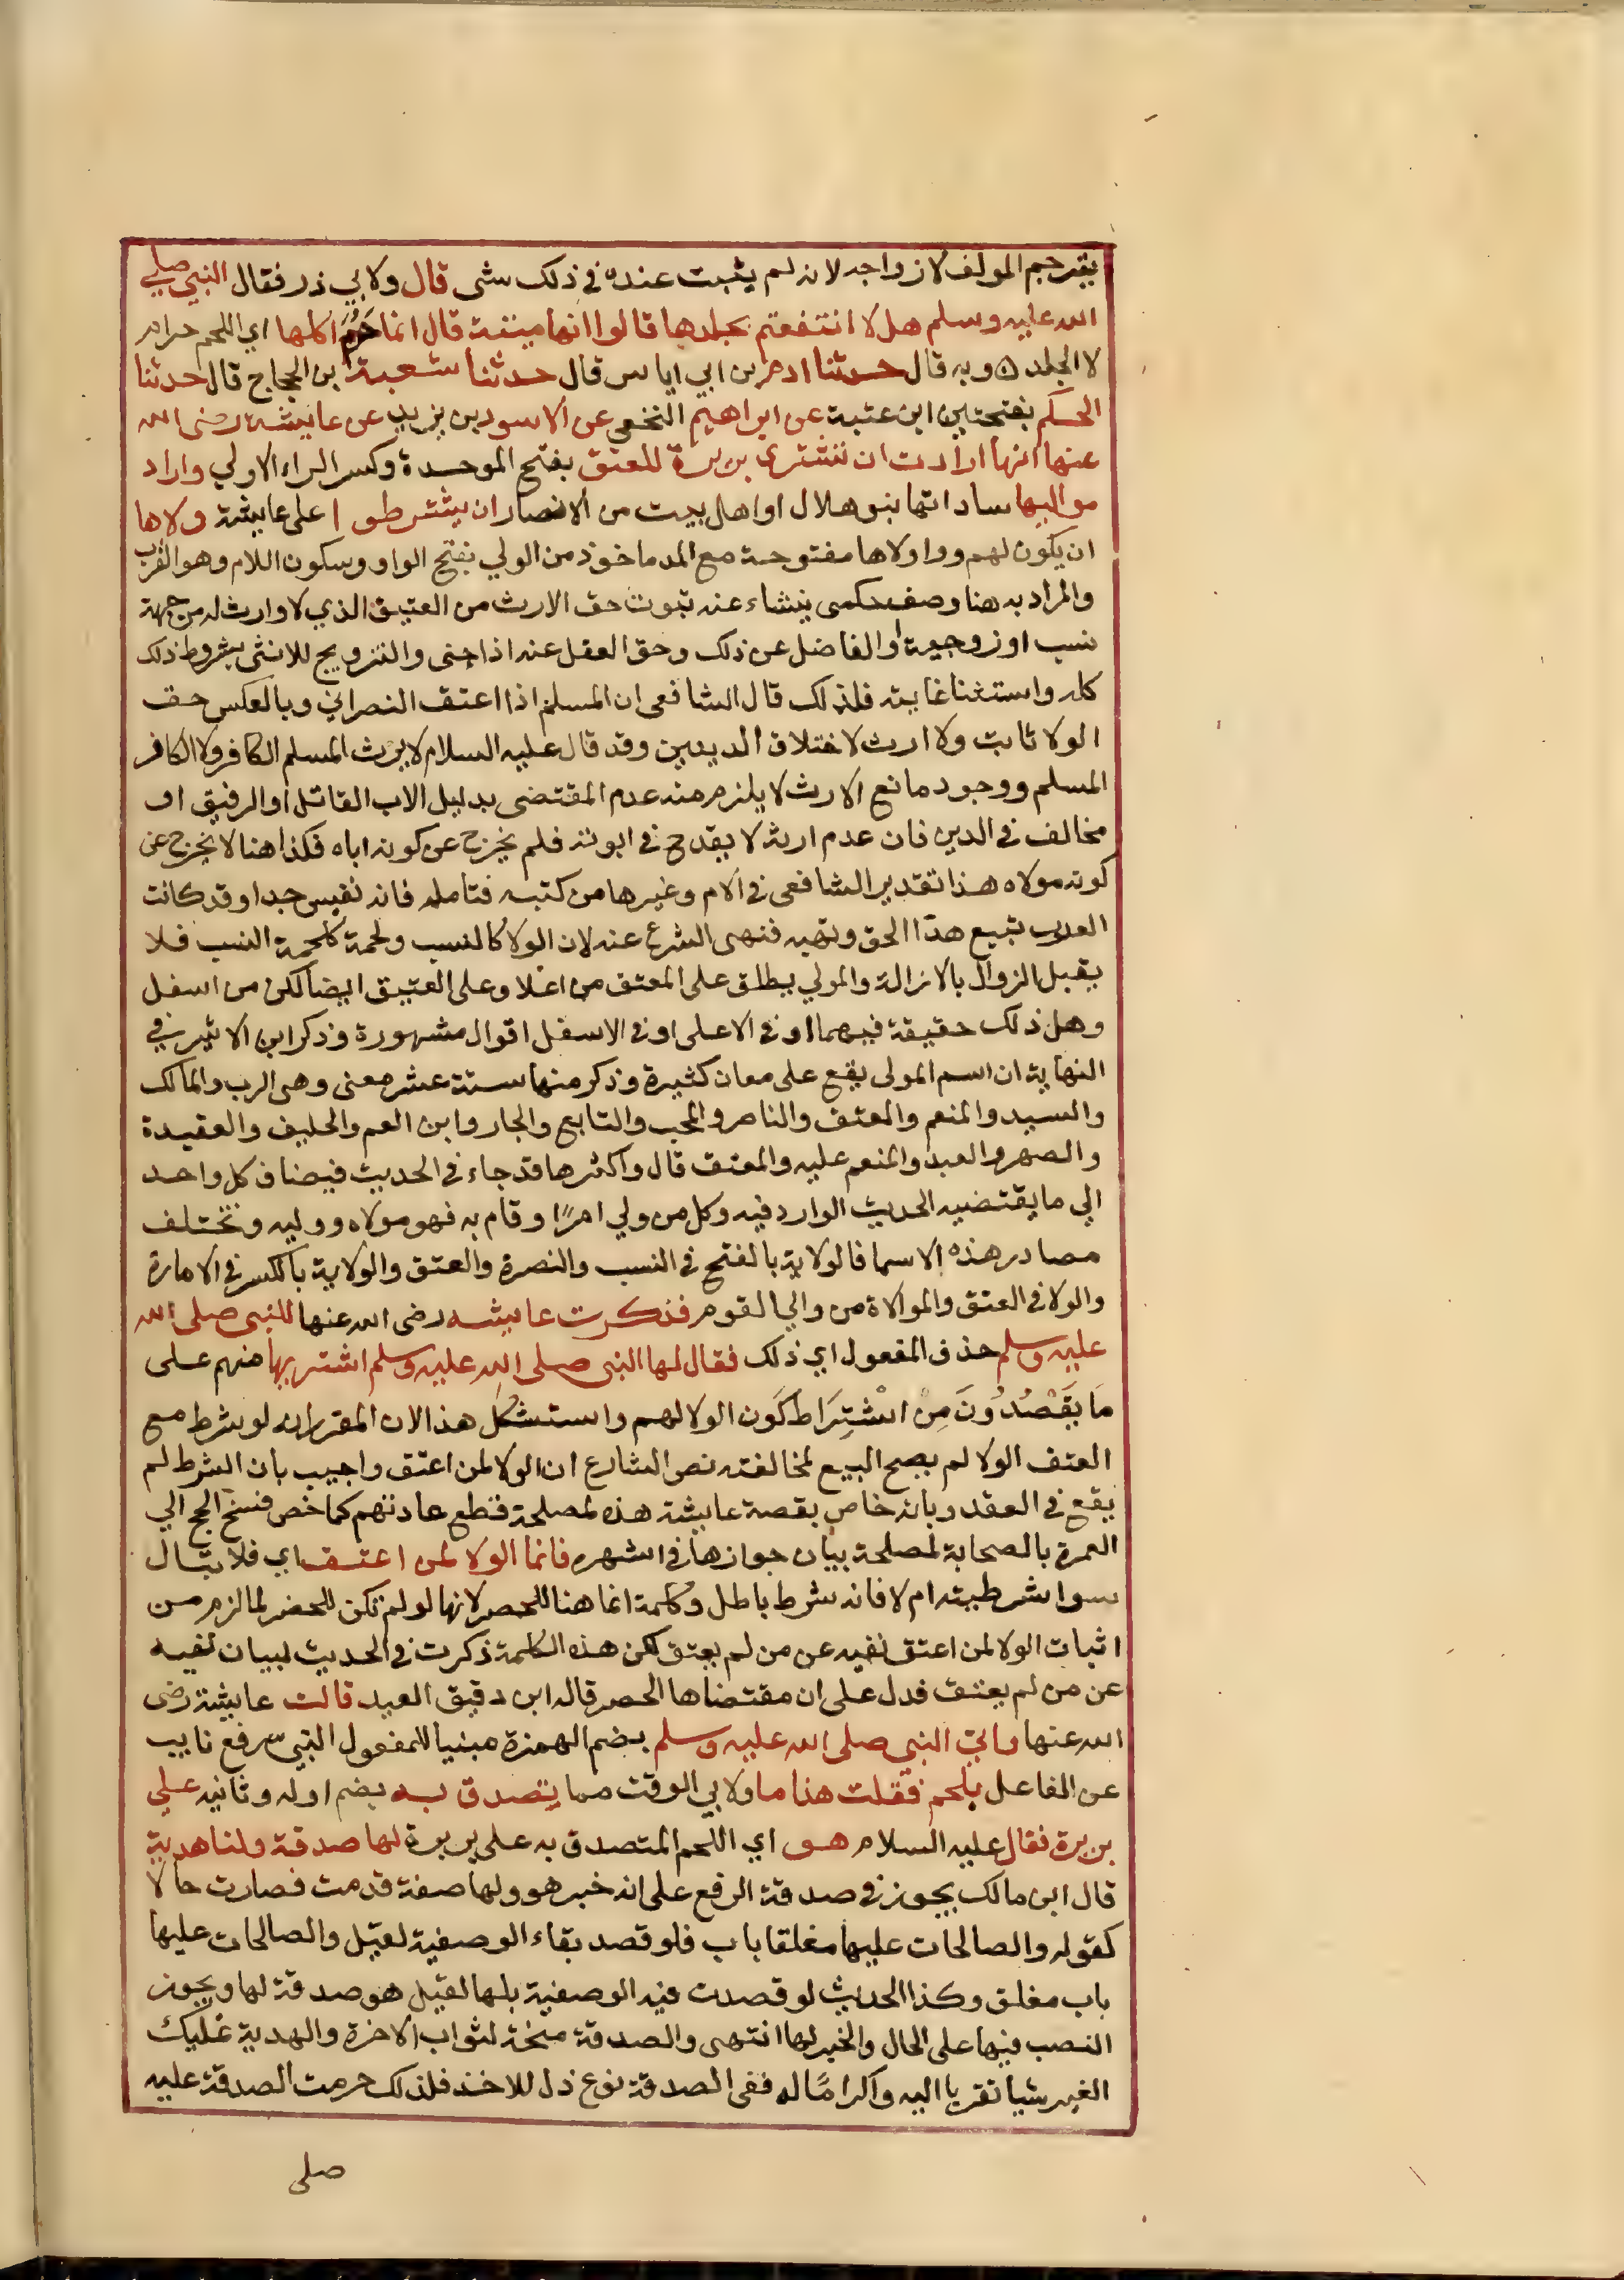 يترجم المولف لازواجه لانه لم يثبت عنده في ذلك شى قال ولابي ذر فقال النبي صلي
الله عليه وسلم هلا انتفعتم بجلدها قالوا انها ميتة قال انما حَرُمَ اكلها اي اللحم حرام
لا الجلد ه وبه قال حدثنا ادم بن ابي اياس قال حدثنا شعبة بن الحجاج قال حدثنا
الحكم بفتحتين ابن عتبة عن ابراهيم النخعي عن الاسود بن يزيد عن عايشة رضى الله
عنها انها ارادت ان تشتري بريرة للعتق بفتح الموحدة وكسر الراء الاولي واراد
مواليها ساداتها بنو هلال او اهل بيت من الانصار ان يشترطوا على عايشة ولاها
ان يكون لهم وواو ولاها مفتوحة مع المد ماخوذ من الولي بفتح الواو وسكون اللام وهو القرب
والمراد به هنا وصف حكمى ينشاء عنه ثبوت حق الارث من العتيق الذي لا وارث له من جهة
نسب او زوجية او الفاضل عن ذلك وحق العقل عنه اذا جنى والتزويج للانثى بشروط ذلك
كله واستثنا غايته فلذلك قال الشافعى ان المسلم اذا اعتق النصراني وبالعكس حق
الولا ثابت ولا ارث لاختلاف الدينين وقد قال عليه السلام لا يرث المسلم الكافر ولا الكافر
المسلم ووجود مانع الارث لا يلزم منه عدم المقتضى بدليل الاب القاتل او الرقيق او
مخالف في الدين فان عدم ارثه لا يقدح في ابوته فلم يخرج عن كونه اباه فكذا هنا لا يخرج عن
كونه مولاه هذا تقدير الشافعى في الام وغيرها من كتبه فتامله فانه نفيس جدا وقد كانت
العرب تبيع هذا الحق وتهبه فنهى الشرع عنه لان الولا كالنسب ولحمة كلحمة النسب فلا
يقبل الزوال بالازالة والمولي يطلق على المعتق من اعلا وعلى العتيق ايضا لكن من اسفل
وهل ذلك حقيقة فيهما او في الاعلى او في الاسفل اقوال مشهورة وذكر ابن الاثير في
النهاية ان اسم المولى يقع على معان كثيرة وذكر منها ستة عشر معنى وهى الرب والمالك
والسيد والمنعم والمعتق والناصر والمحب والتابع والجار وابن العم والحليف والعقيدة
والصهر والعبد والمنعم عليه والمعتق قال واكثرها قد جاء في الحديث فيضاف كل واحد
الي ما يقتضيه الحديث الوارد فيه وكل من ولي امرًا وقام به فهو مولاه ووليه وتختلف
مصادر هذه الاسما فالولاية بالفتح في النسب والنصرة والعتق والولاية بالكسر في الامارة
والولا في العتق والموالاة من والي القوم فذكرت عايشه رضى الله عنها للنبى صلى الله
عليه وسلم حذف المفعول اي ذلك فقال لها النبى صلى الله عليه وسلم اشتريها منهم على
مَا يَقْصُدُونَ مِنْ اشْتِرَاط كَون الولا لهم واستشكل هذا لان المقرر انه لو شرط مع
العتق الولا لم يصح البيع لمخالفته نص الشارع ان الولا لمن اعتق واجيب بان الشرط لم
يقع في العقد وبانه خاص بقصة عايشة هذه لمصلحة قطع عادتهم كما خص فسخ الحج الي
العمرة بالصحابة لمصلحة بيان جوازها في اشهره فانما الولا لمن اعتق اي فلا تبال
سوا شرطيته ام لا فانه شرط باطل وكلمة انما هنا للحصر لانها لو لم تكن للحصر لما لزم من
اثبات الولا لمن اعتق نفيه عن من لم يعتق لكن هذه الكلمة ذكرت في الحديث لبيان نفيه
عن من لم يعتق فدل على ان مقتضاها الحصر قاله ابن دقيق العيد قالت عايشة رضى
الله عنها واتي النبي صلى الله عليه وسلم بضم الهمزة مبنيا للمفعول النبي رفع نايب
عن الفاعل بلحم فقلت هذا ما ولابي الوقت مما يتصدق به بضم اوله وثانيه علي
بريرة فقال عليه السلام هو اي اللحم المتصدق به على بريرة لها صدقة ولنا هدية
قال ابن مالك يجوز في صدقة الرفع على انه خبر هو ولها صفة قدمت فصارت حالا
كقوله والصالحات عليها مغلقا باب فلو قصد بقاء الوصفية لقيل والصالحات عليها
باب مغلق وكذا الحديث لو قصدت فيه الوصفية بلها لقيل هو صدقة لها ويجوز
النصب فيها على الحال والخبر لها انتهى والصدقة منحة لثواب الاخرة والهدية تمليك
الغير شيا تقربا اليه واكرامًا له ففى الصدقة نوع ذل للاخذ فلذلك حرمت الصدقة عليه
صلى